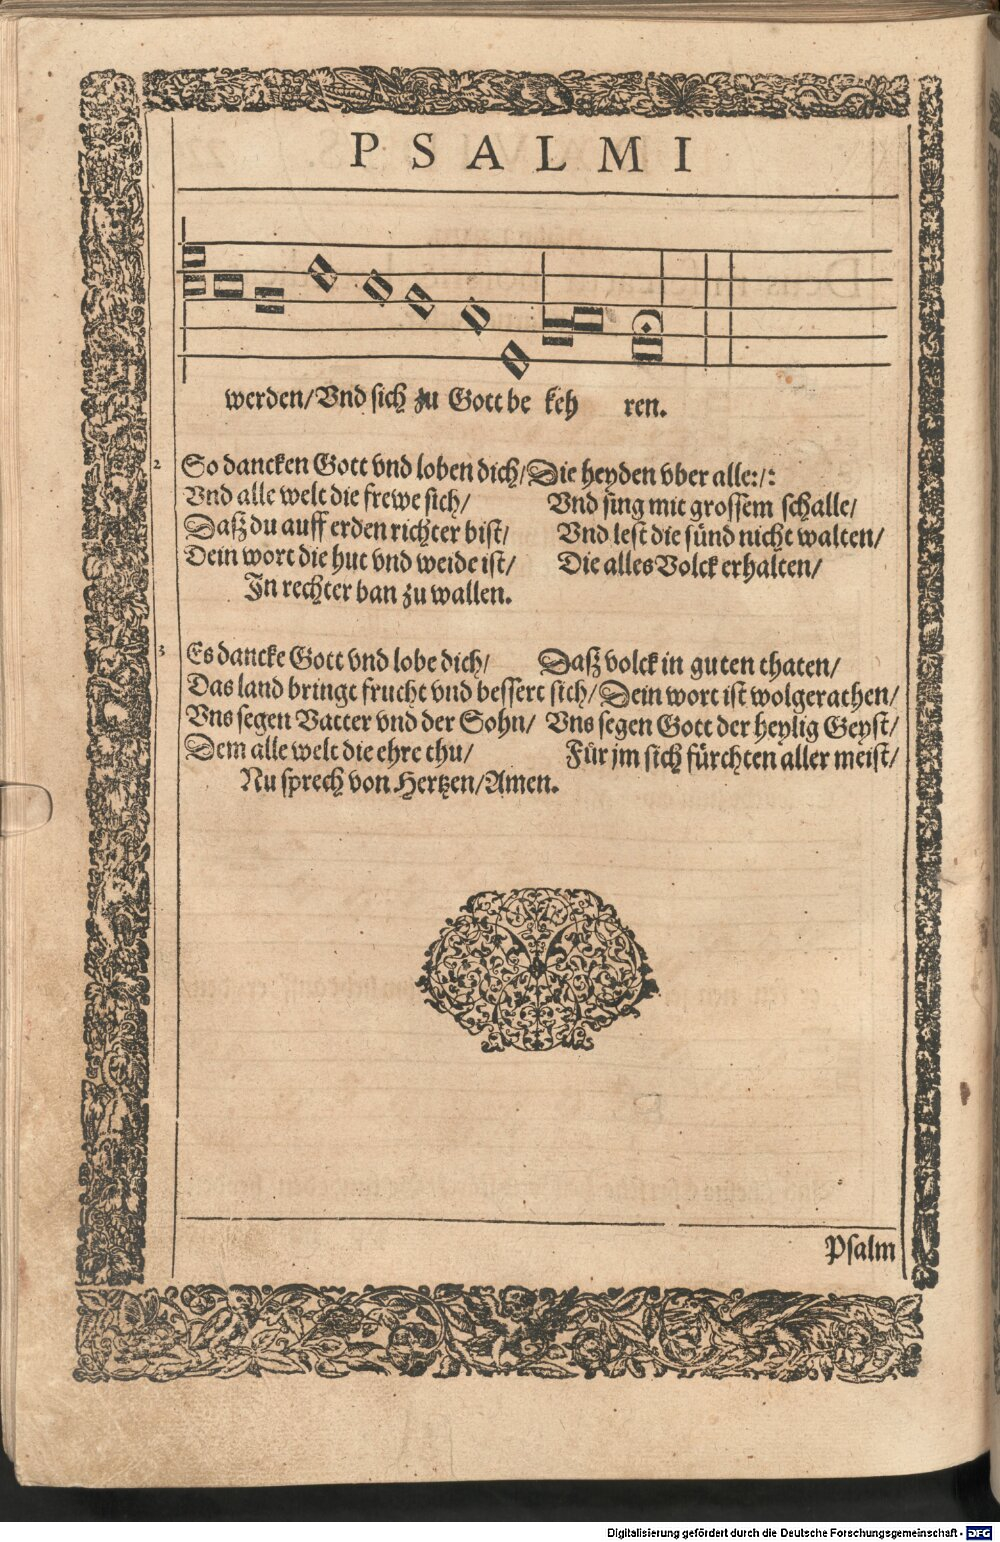 PSALMI
werden/ Vnd sich zu Gott be keh ren.
2 So dancken Gott vnd loben dich/ Die heyden vber alle:/:
Vnd alle welt die frewe sich/ Vnd sing mit grossem schalle/
Daß du auff erden richter bist/ Vnd lest die sünd nicht walten/
Dein wort die hut vnd weide ist/ Die alles Volck erhalten/
In rechter ban zu wallen.
3 Es dancke Gott vnd lobe dich/ Daß volck in guten thaten/
Das land bringt frucht vnd bessert sich/ Dein wort ist wolgerathen/
Vns segen Vatter vnd der Sohn/ Vns segen Gott der heylig Geyst/
Dem alle welt die ehre thu/ Für jm sich fürchten aller meist/
Nu sprech von Hertzen/ Amen.
Psalm
Digitalisierung gefördert durch die Deutsche Forschungsgemeinschaft - DFG